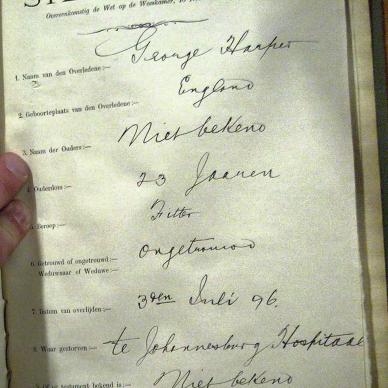 Overeenkomstig de Wet op de Weeskamer,
1. Naam van den Overledene:— George Harper
2. Geboorteplaats van den Overledene:— England
3. Naam der Ouders:— Niet bekend
4. Ouderdom:— 23 Jaaren
5. Beroep:— Fitter
6. Getrouwd of ongetrouwd:— ongetrouwd
Weduwnaar of Weduwe:—
7. Datum van overlijden:— 3den Juli 96.
8. Waar gestorven:— te Johannesburg Hospitaal
9. Of er testament bekend is:— Niet bekend